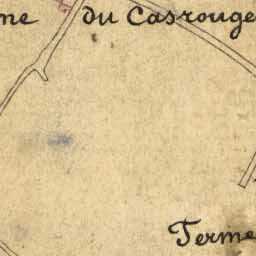 ne du Casrouge
Terme